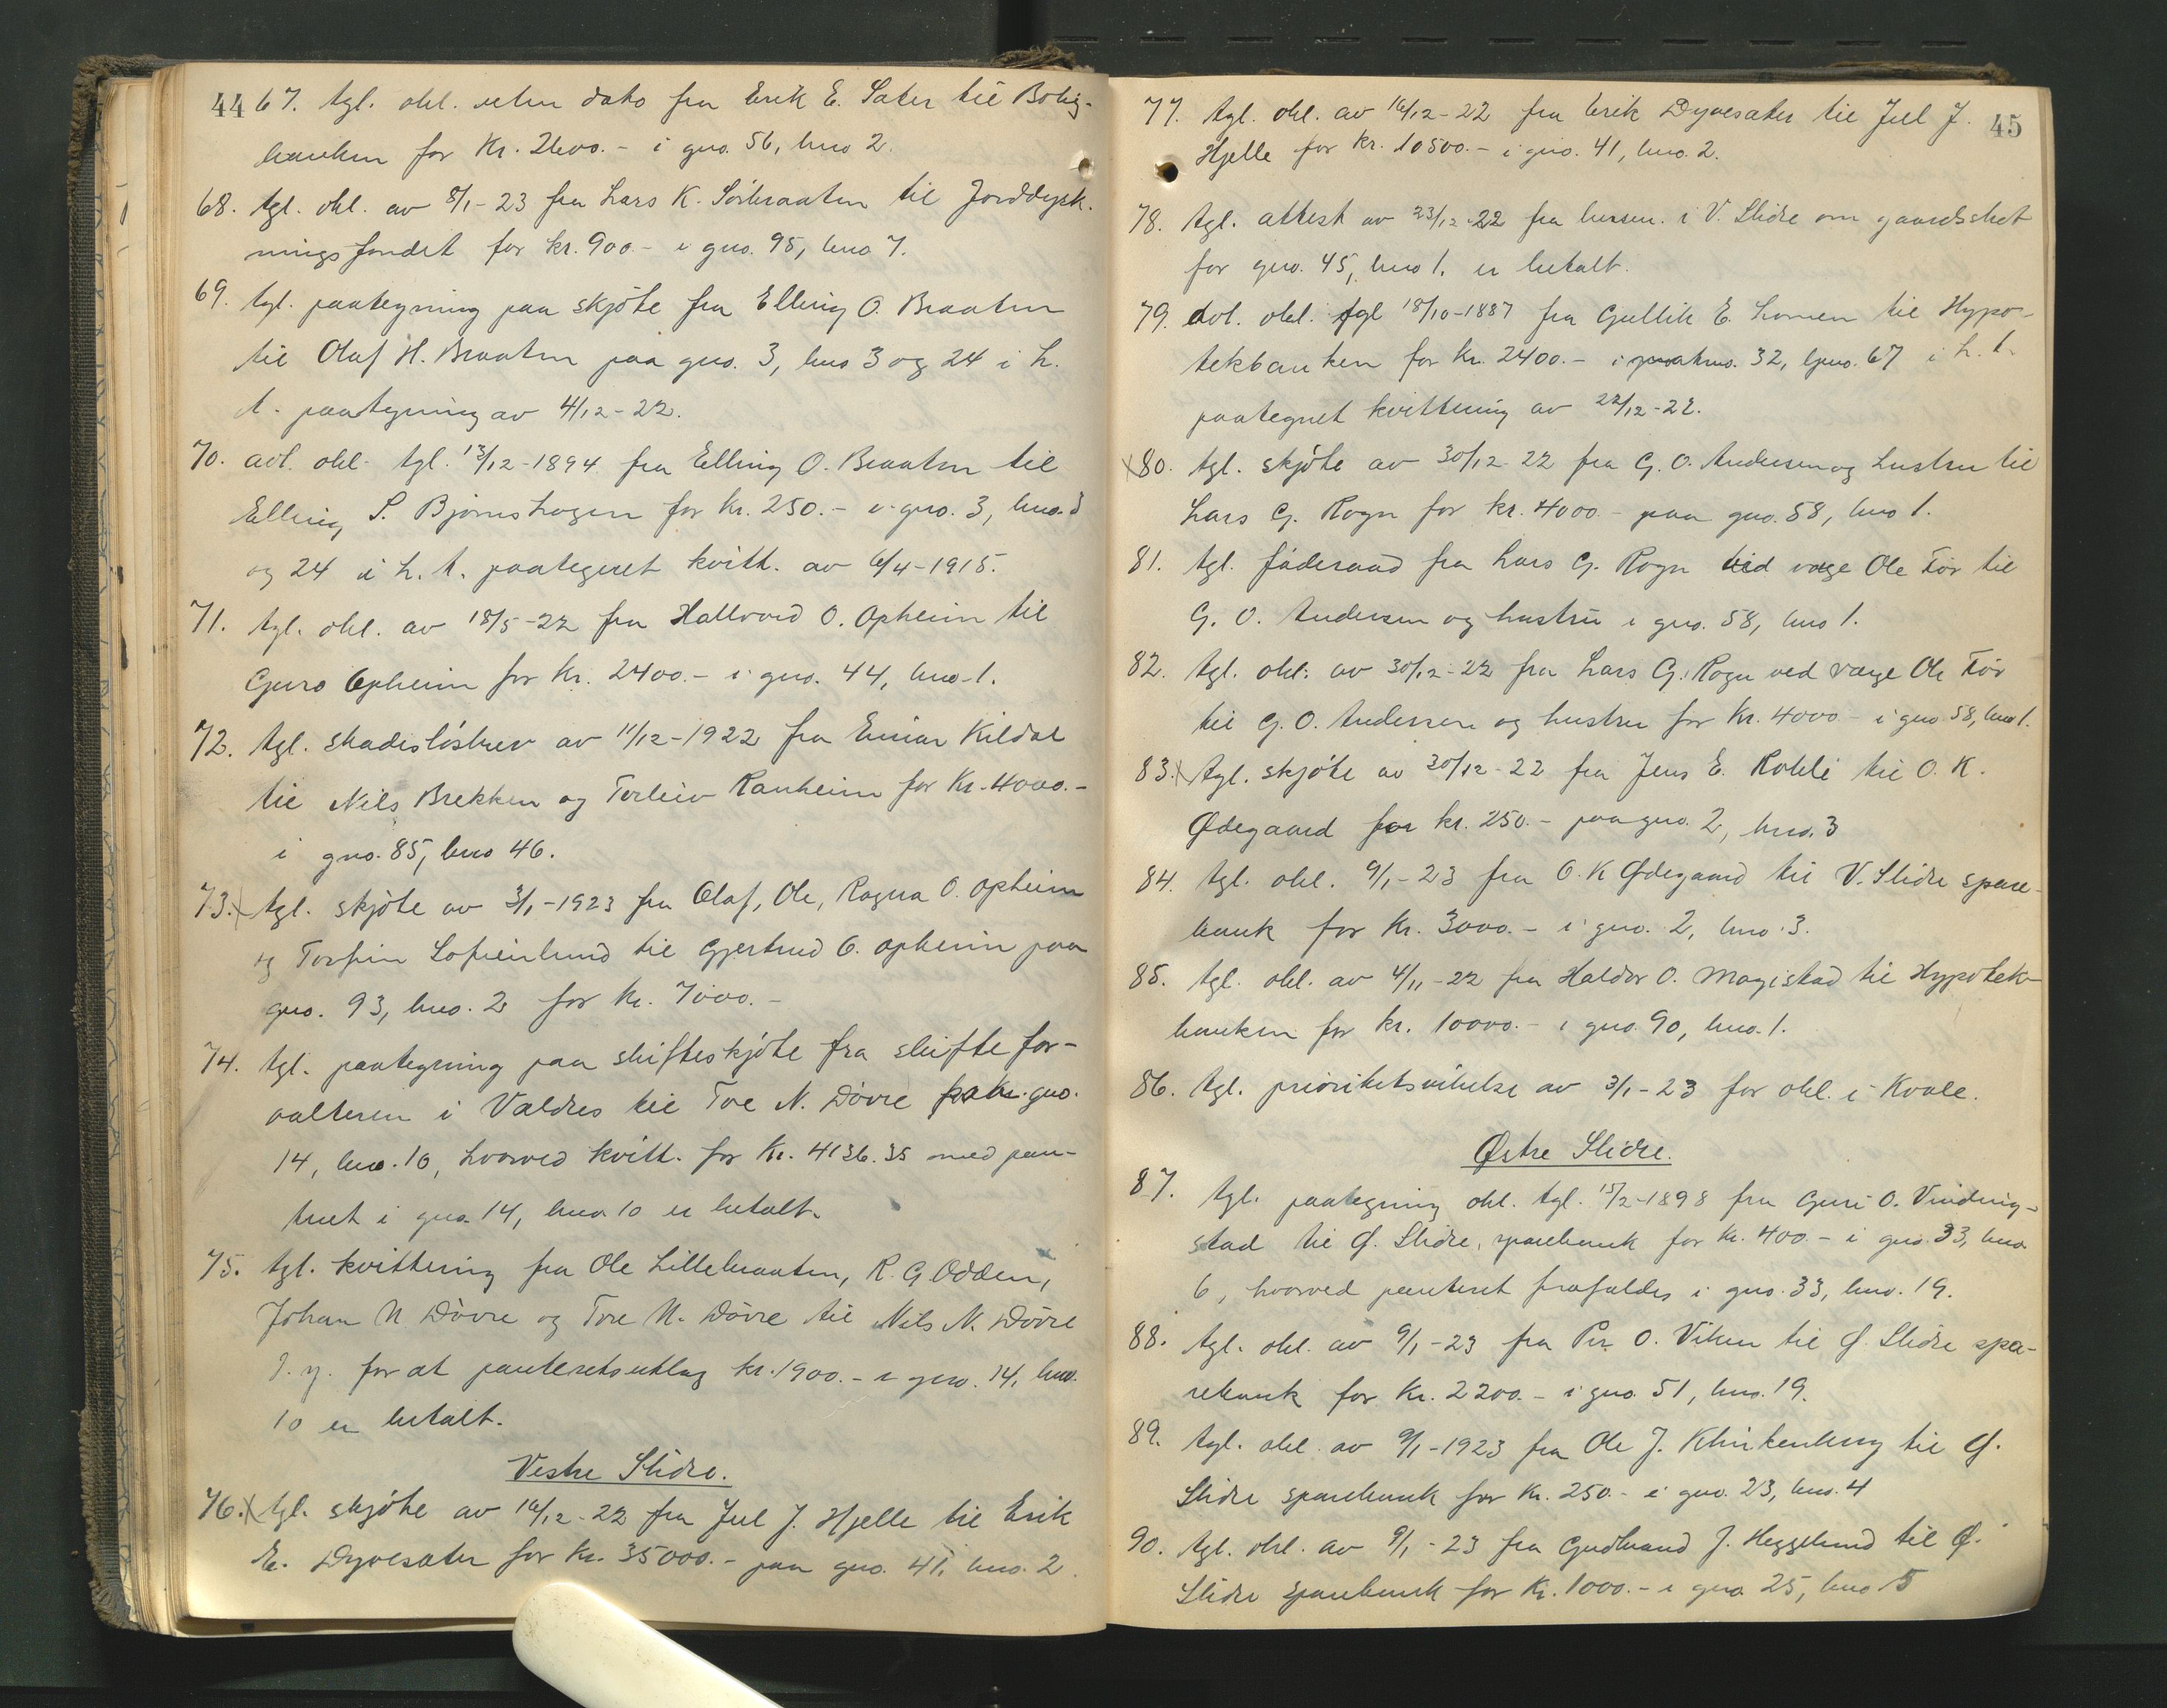 44
67. tgl. obl. uten dato fra Erik E. Sæter til Bolig-
banken for Kr. 2600.- i gno. 56, bno 2.
68. tgl. obl. av 8/1-23 fra Lars K. Sörbraaten til Jorddyrk-
ningsfondet for kr. 900.- i gno. 95, bno 7.
69. tgl. paategning paa skjöte fra Elling O. Braaten
til Olaf H. Braaten paa gno. 3, bno 3 og 24 i h.
t. paategning av 4/12-22.
70. avl. obl. tgl. 13/12-1894 fra Elling O. Braaten til
Elling S. Björnshagen for Kr. 250.- i gno. 3, bno. 3
og 24 i h. t. paategnet kvitt. av 6/4-1915.
71. tgl. obl. av 18/5-22 fra Hallvard O. Opheim til
Guro Opheim for Kr. 2400.- i gno. 44, bno 1.
72. tgl. skadeslösbrev av 11/12-1922 fra Einar Kildal
til Nils Brekken og Torleiv Ranheim for Kr. 4000.-
i gno. 85, bno 46.
73. tgl. skjöte av 3/1-1923 fra Olaf, Ole, Ragna O. Opheim
og Torfin Lofeimlund til Gjertrud O. Opheim paa
gno. 93, bno. 2 for Kr. 7000.-
74. tgl. paategning paa skifteskjöte fra skiftefor-
valteren i Valdres til Tore N. Dövre paa gno.
14, bno. 10, hvorved kvitt. for Kr. 4136.35 med pan-
teret i gno. 14, bno 10 er betalt.
75. tgl. kvittering fra Ole Lillebraaten, R. G. Odden,
Johan N. Dövre og Tore N. Dövre til Nils N. Dövre
d. y. for at panteretsutlæg kr. 1900.- i gno. 14, bno.
10 er betalt.
Vestre Slidre.
76. tgl. skjöte av 16/12-22 fra Jul J. Hjelle til Erik
E. Dyvesæter for Kr. 35000.- paa gno. 41, bno. 2.
45
77. tgl. obl. av 16/12-22 fra Erik Dyvesæter til Jul J.
Hjelle for Kr. 10500.- i gno. 41, bno. 2.
78. tgl. attest av 23/12-22 fra lensm. i V. Slidre om gaardsskat
for gno. 45, bno 1. er betalt.
79. avl. obl. tgl 18/10-1887 fra Gullik E. Lomen til Hypo-
tekbanken for kr. 2400.- i matno. 32, lpno. 67 i h. t.
paategnet kvittering av 22/12-22.
80. tgl. skjöte av 30/12-22 fra G. O. Andersen og hustru til
Lars G. Rogn for kr. 4000.- paa gno. 58, bno 1.
81. tgl. föderaad fra Lars G. Rogn ved værge OleFör til
G. O. Andersen og hustru i gno. 58, bno 1.
82. tgl. obl. av 30/12-22 fra Lars G. Rogn ved værge Ole För
til G. O. Andersen og hustru for Kr. 4000.- i gno 58, bno 1.
83. tgl. skjöte av 30/12-22 fra Jens E. Robli til O. K.
Ødegaard for kr. 250.- paa gno. 2, bno. 3
84. tgl. obl. 9/1-23 fra O. K Ødegaard til V. Slidre spare-
bank for Kr. 3000.- i gno. 2, bno. 3.
85. tgl. obl. av 4/11-22 fra Haldor O. Magistad til Hypotek-
banken for kr. 10000.- i gno. 90, bno. 1.
86. tgl. prioritetsvikelse av 3/1-23 for obl. i Kvale.
Østre Slidre.
87. tgl. paategning obl. tgl. 15/2-1898 fra Guri O. Vinding-
stad til Ø. Slidre, sparebank for Kr. 400.- i gno. 33, bno.
6, hvorved panteret frafaldes i gno. 33, bno. 19.
88. tgl. obl. av 9/1-23 fra Per O. Viken til Ø. Slidre spa-
rebank for Kr. 2200.- i gno. 51, bno. 19.
89. tgl. obl. av 9/1-1923 fra Ole J. Klinkenberg til Ø.
Slidre sparebank for Kr. 250.- i gno. 23, bno. 4
90. tgl. obl. av 9/1-23 fra Gudbrand J. Heggelund til Ø.
Slidre sparebank for Kr. 1000.- i gno. 25, bno 5